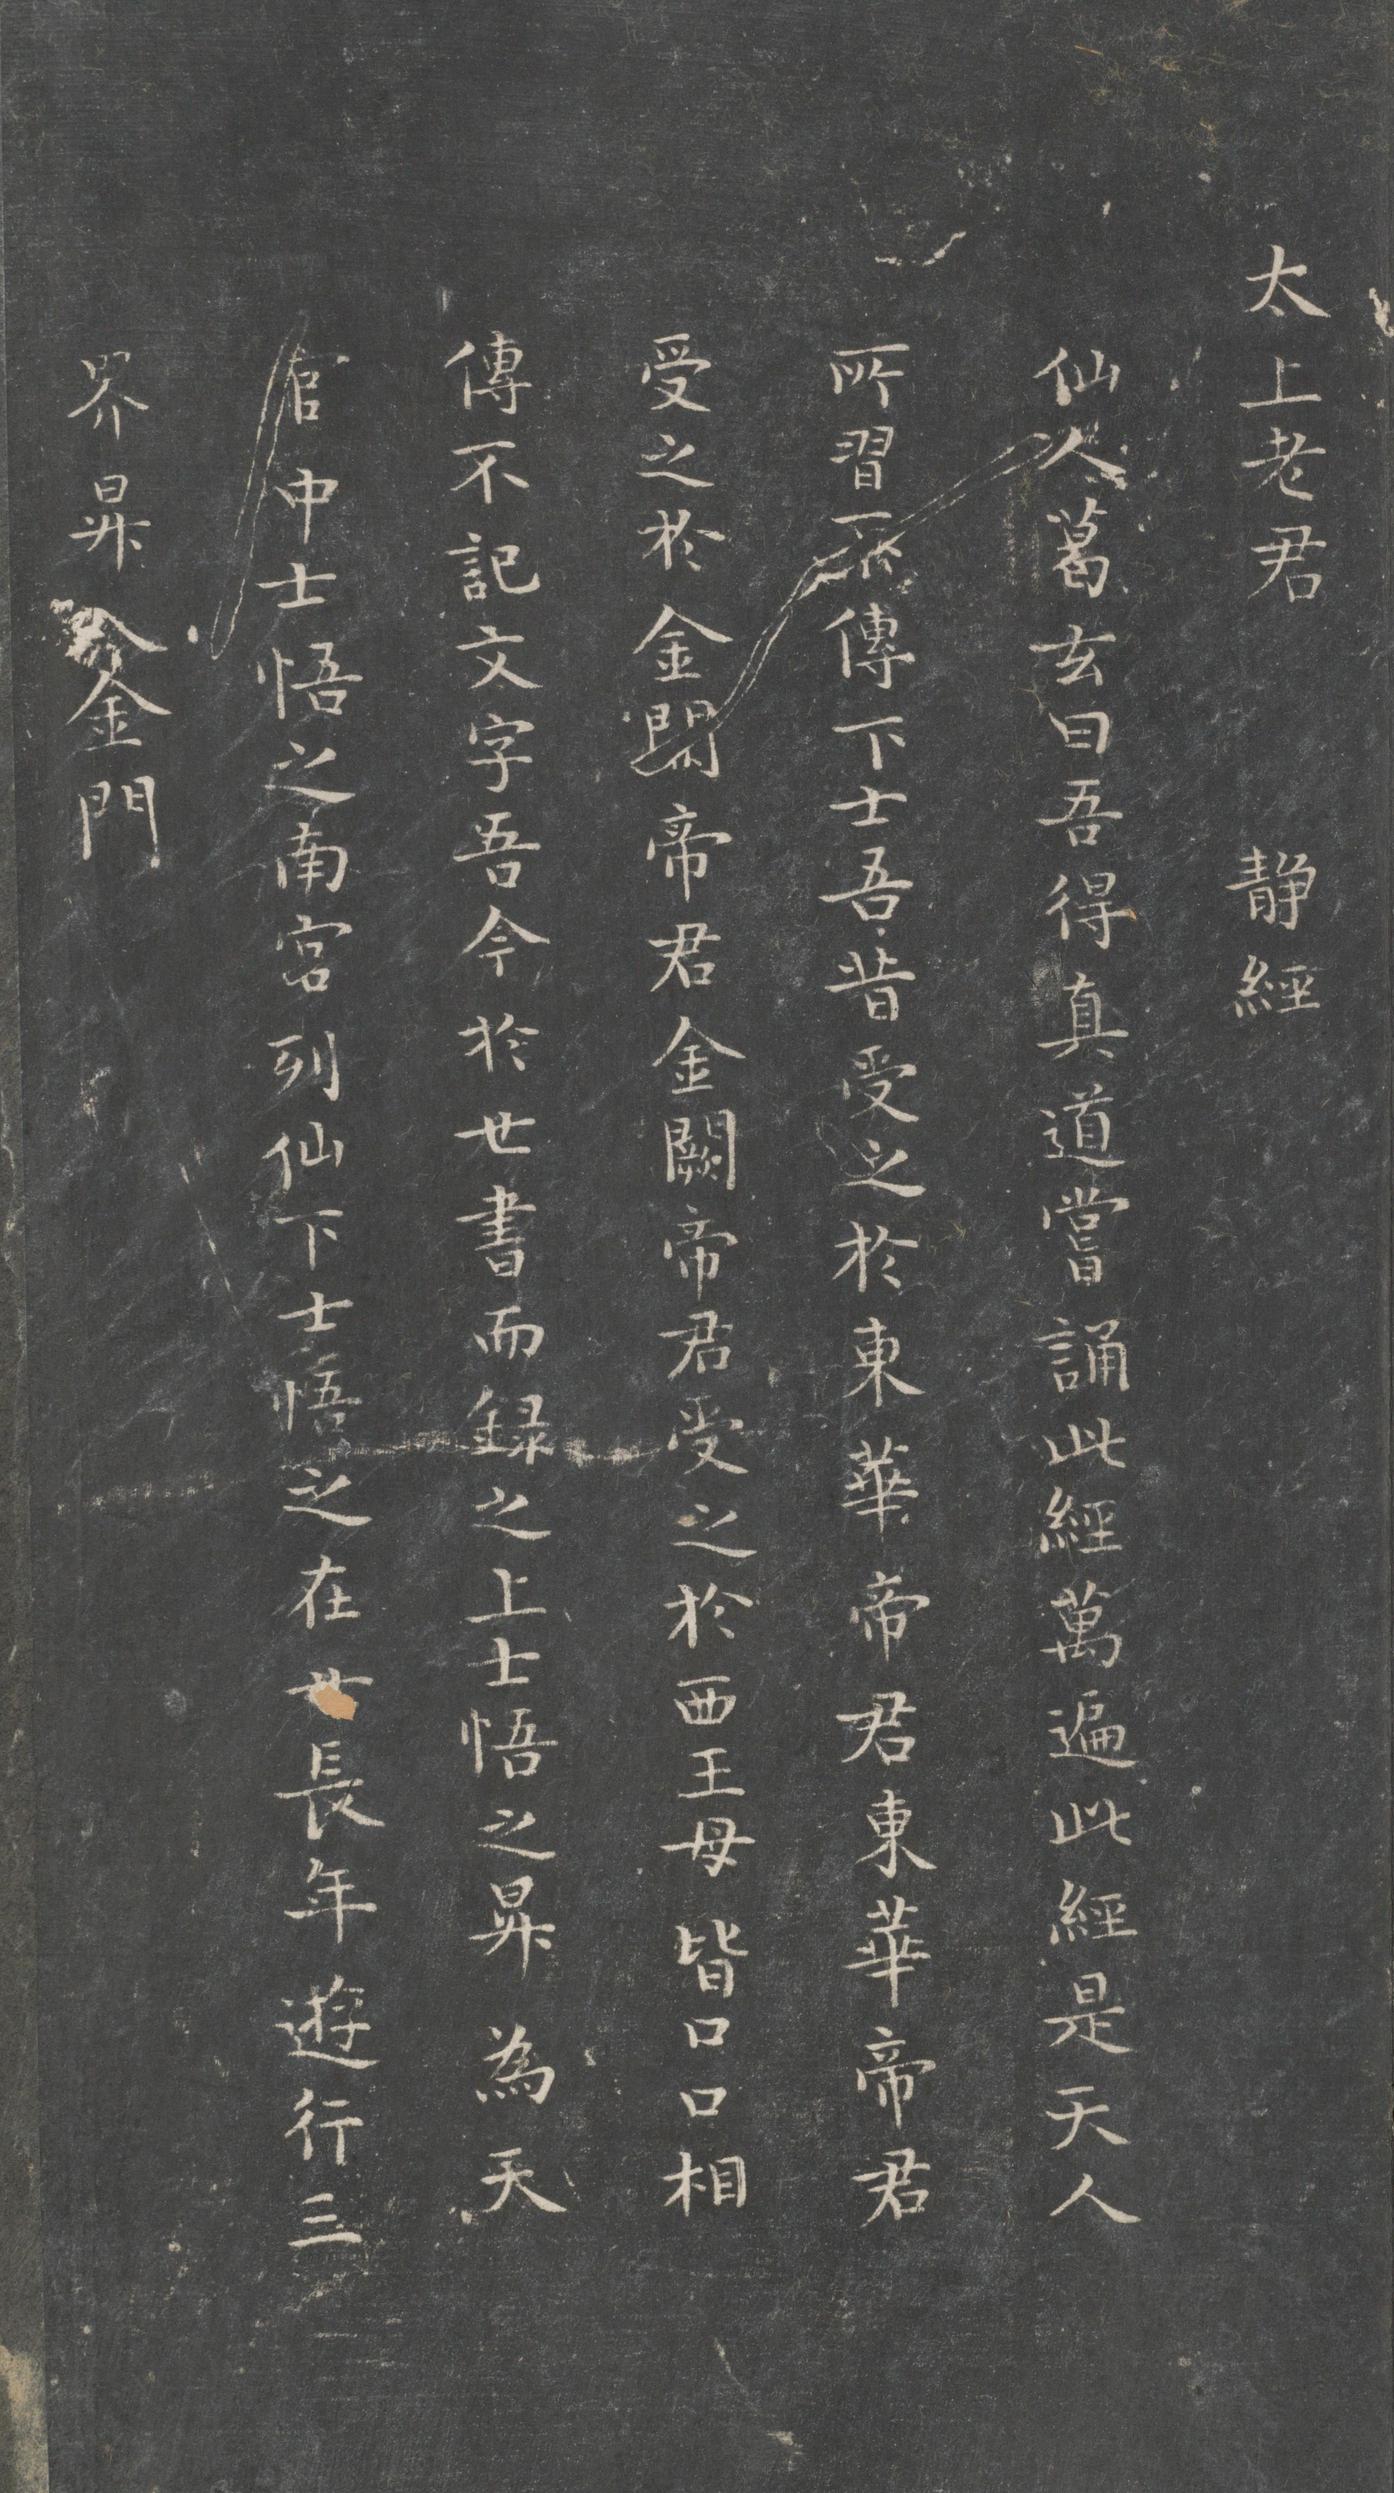 太上老君 静經
仙人葛玄曰吾得真道嘗誦此經萬遍此經是天人
所習不傳下士吾昔受之於東華帝君東華帝君
受之於金闕帝君金闕帝君受之於西王母皆口口相
傳不記文字吾今於世書而録之上士悟之昇為天
官中士悟之南宮列仙下士悟之在世長年遊行三
界昇金門